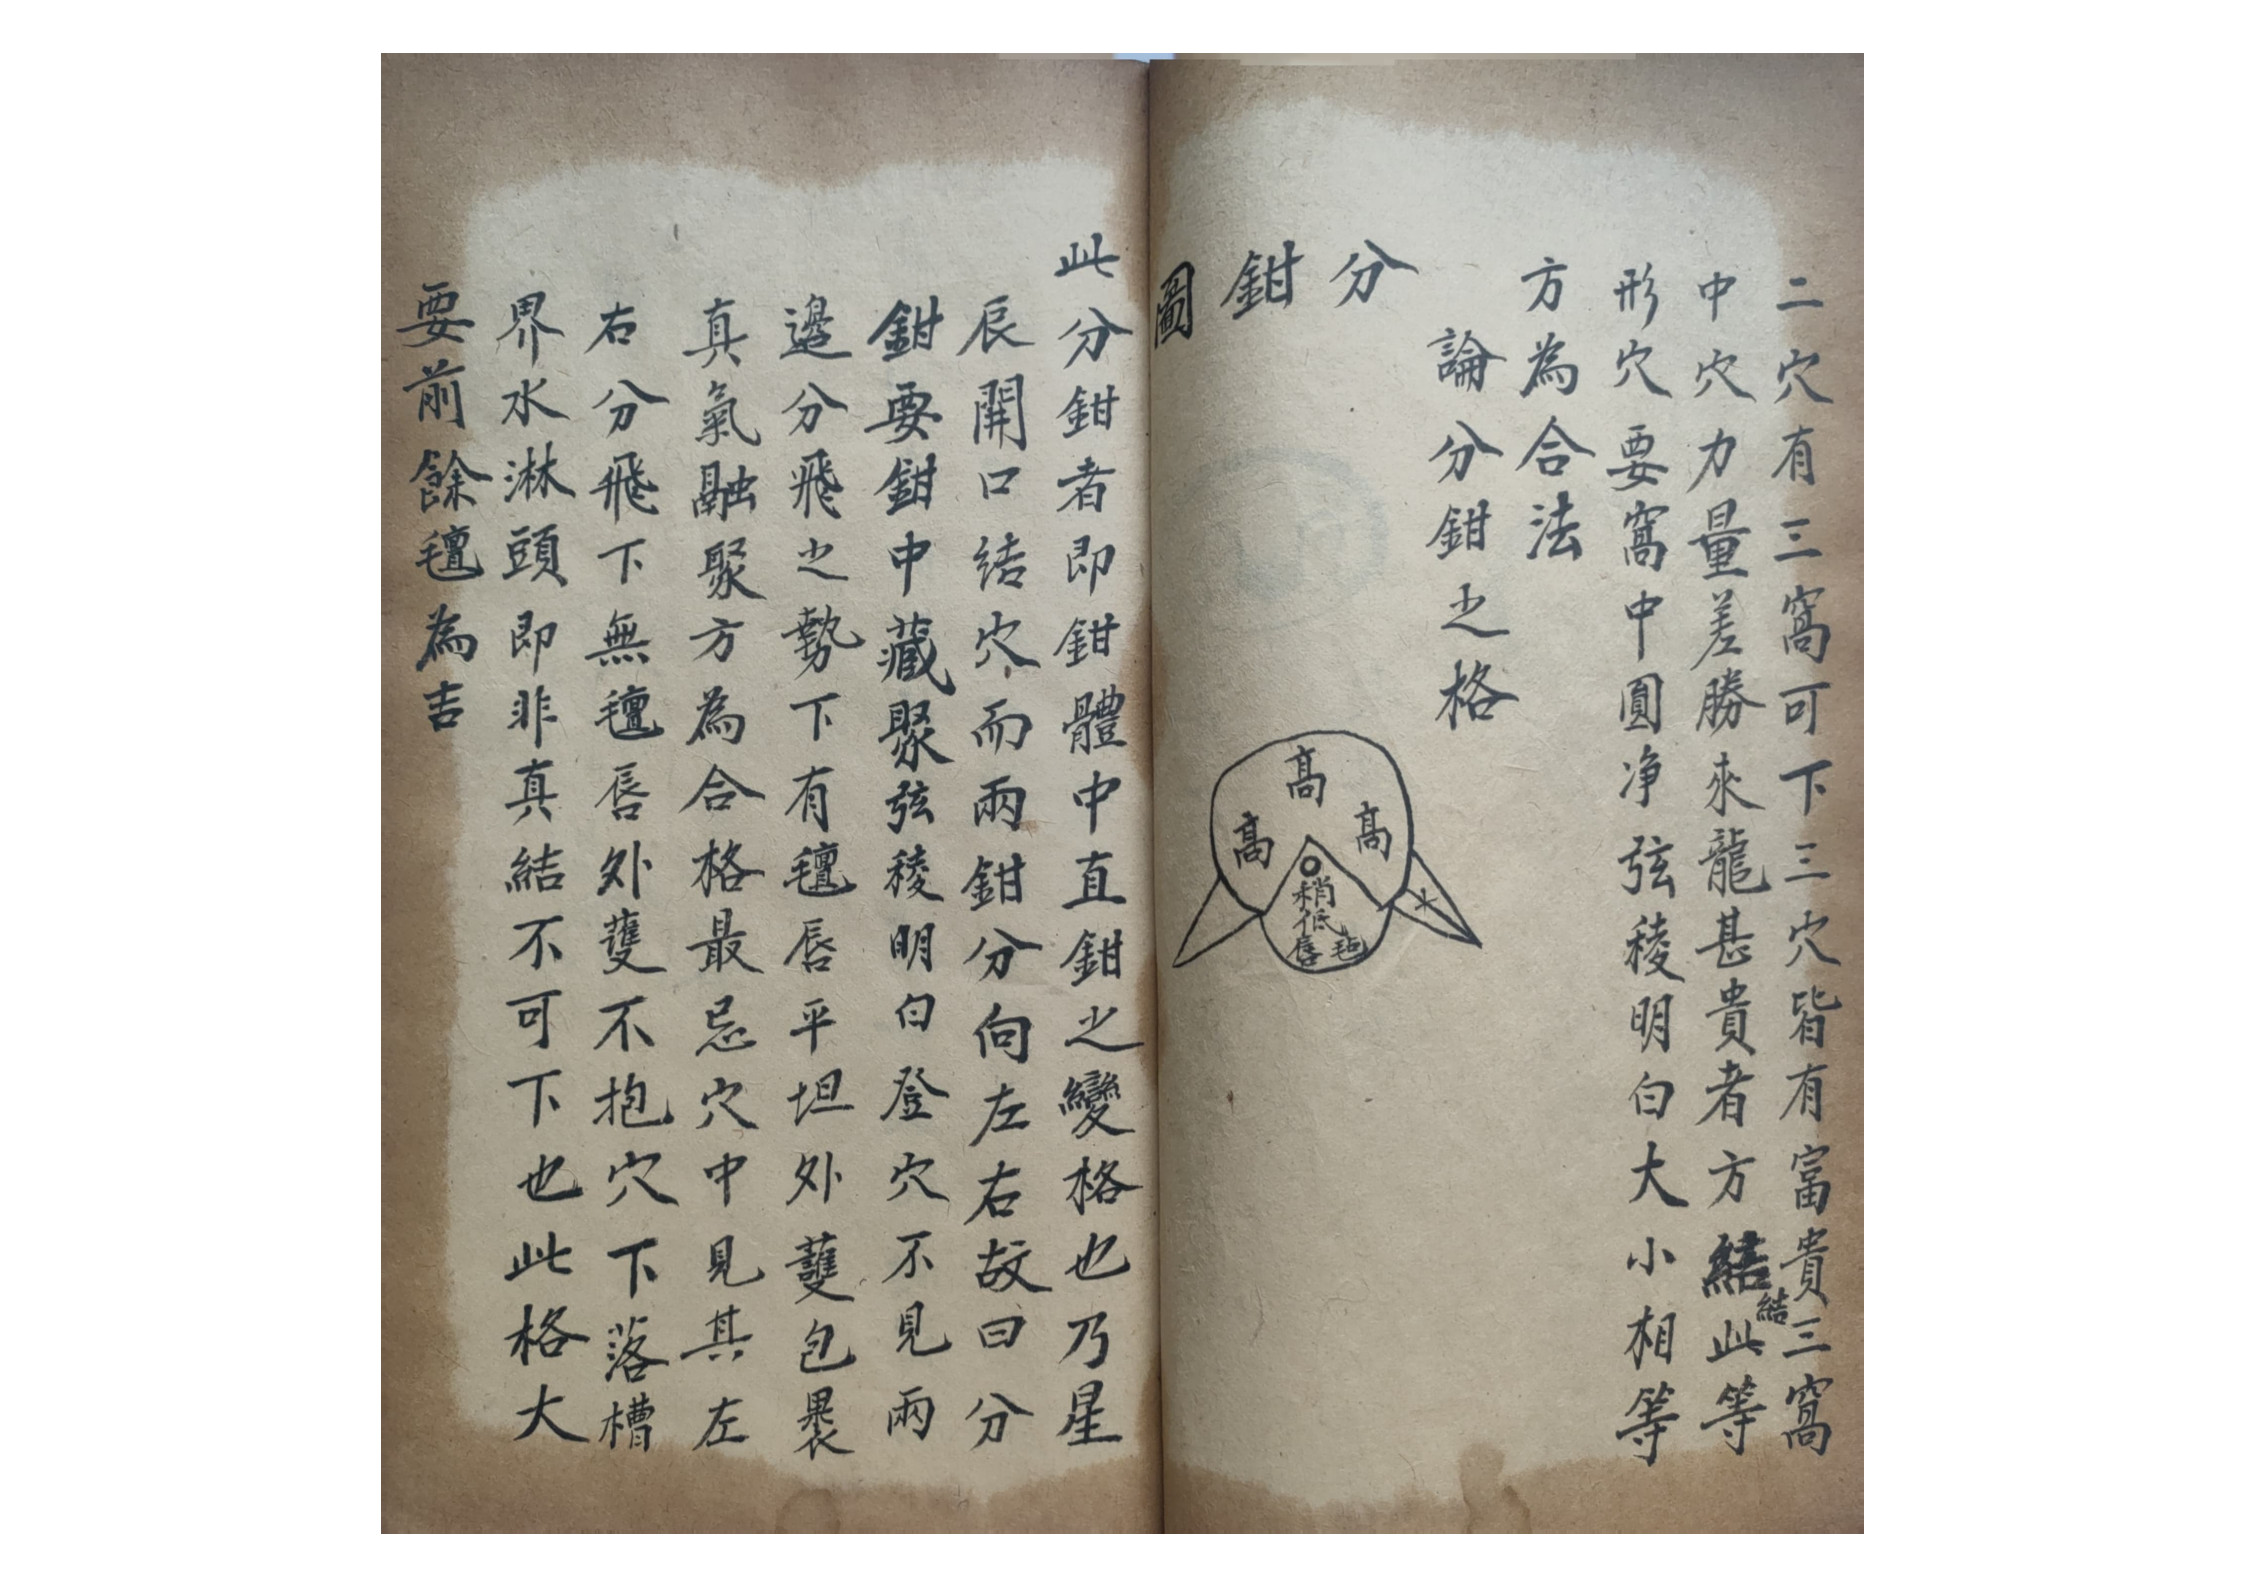 二穴有三窩可下三穴皆有富貴三窩
中穴力量差勝來龍甚貴者方結此等
結
形穴要窩中圓净弦稜明白大小相等
方為合法
論分鉗之格
分鉗圖
高
高
高
稍低
唇
毡
此分鉗者即鉗體中直鉗之變格也乃星
辰開口結穴而兩鉗分向左右故曰分
鉗要鉗中藏聚弦稜明白登穴不見兩
邉分飛之勢下有氊唇平坦外䕶包裹
真氣融聚方為合格最忌穴中見其左
右分飛下無氊唇外䕶不抱穴下落槽
界水淋頭即非真結不可下也此格大
要前餘氊為吉